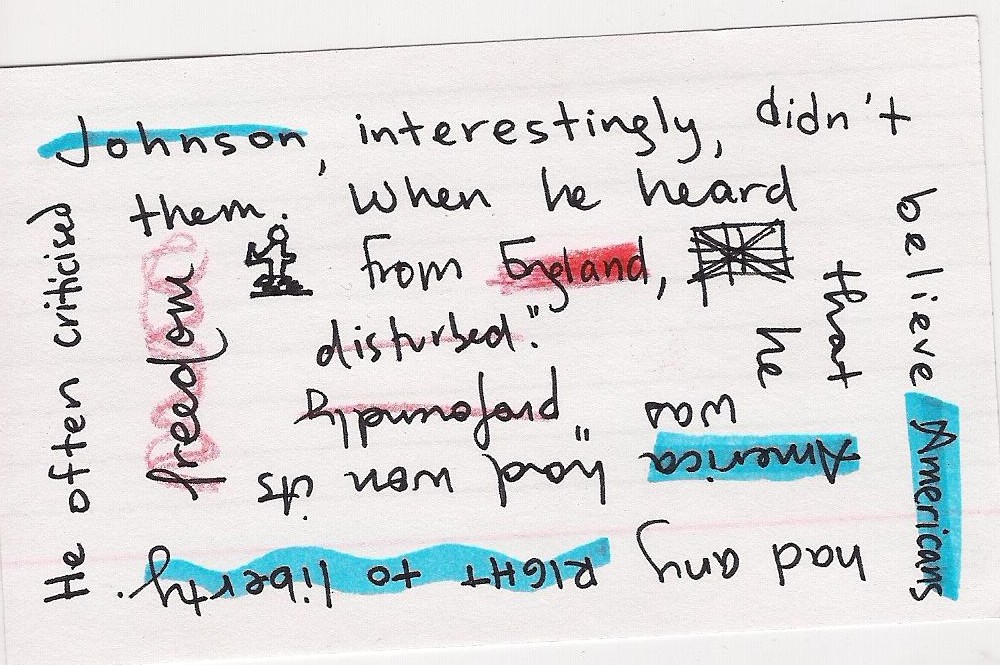 Johnson, interestingly, didn't
believe Americans
had any RIGHT to liberty.
He often criticised
them. When he heard
that
America had won its
freedom
from England,
he
was
"profoundly
disturbed".